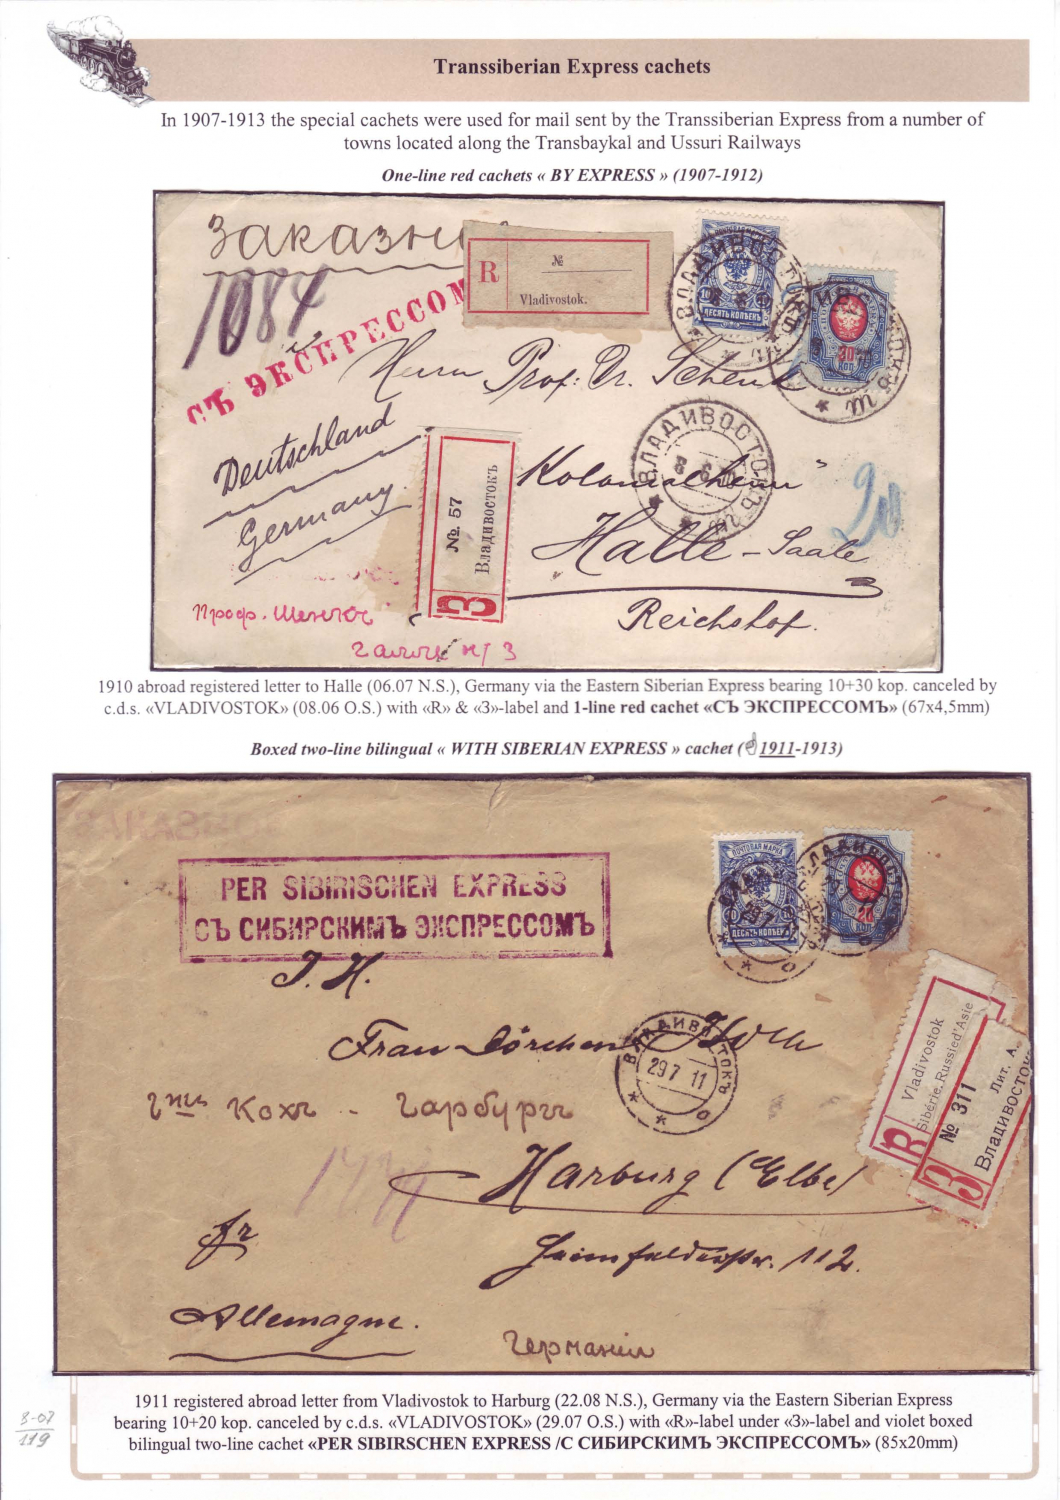 Transsiberian Express cachets
In 1907-1913 the special cachets were used for mail sent by the Transsiberian Express from a number of
towns located along the Transbaykal and Ussuri Railways
One-line red cachets « BY EXPRESS » (1907-1912)
Заказно
1084
СЪ ЭКСПРЕССОМ
R
№
Vladivostok.
ВЛАДИВОСТОКЪ
ДЕСЯТЬ КОПѢЕКЪ
20
КОП
Herrn Prof. Dr. Schenk
Deutschland
Germany.
З
№ 57
Владивостокъ
ВЛАДИВОСТОКЪ
8 6 10
Halle - Saale
20
Reichshof.
Проф. Шенкъ
З
1910 abroad registered letter to Halle (06.07 N.S.), Germany via the Eastern Siberian Express bearing 10+30 kop. canceled by
c.d.s. «VLADIVOSTOK» (08.06 O.S.) with «R» & «З»-label and 1-line red cachet «СЪ ЭКСПРЕССОМЪ» (67x4,5mm)
Boxed two-line bilingual « WITH SIBERIAN EXPRESS » cachet (1911-1913)
PER SIBIRISCHEN EXPRESS
СЪ СИБИРСКИМЪ ЭКСПРЕССОМЪ
ПОЧТОВАЯ МАРКА
ДЕСЯТЬ КОПѢЕКЪ
20
I. H.
Frau Dörchen Koch
ВЛАДИВОСТОКЪ
29 7 11
R
Vladivostok
Sibérie. Russie d'Asie
З
№ 311
Лит. А.
Владивосток
Кохъ - Гарбургъ
Harburg (Elbe)
112.
Allemagne.
Германія
1911 registered abroad letter from Vladivostok to Harburg (22.08 N.S.), Germany via the Eastern Siberian Express
bearing 10+20 kop. canceled by c.d.s. «VLADIVOSTOK» (29.07 O.S.) with «R»-label under «З»-label and violet boxed
bilingual two-line cachet «PER SIBIRSCHEN EXPRESS /С СИБИРСКИМЪ ЭКСПРЕССОМЪ» (85x20mm)
8-07
119